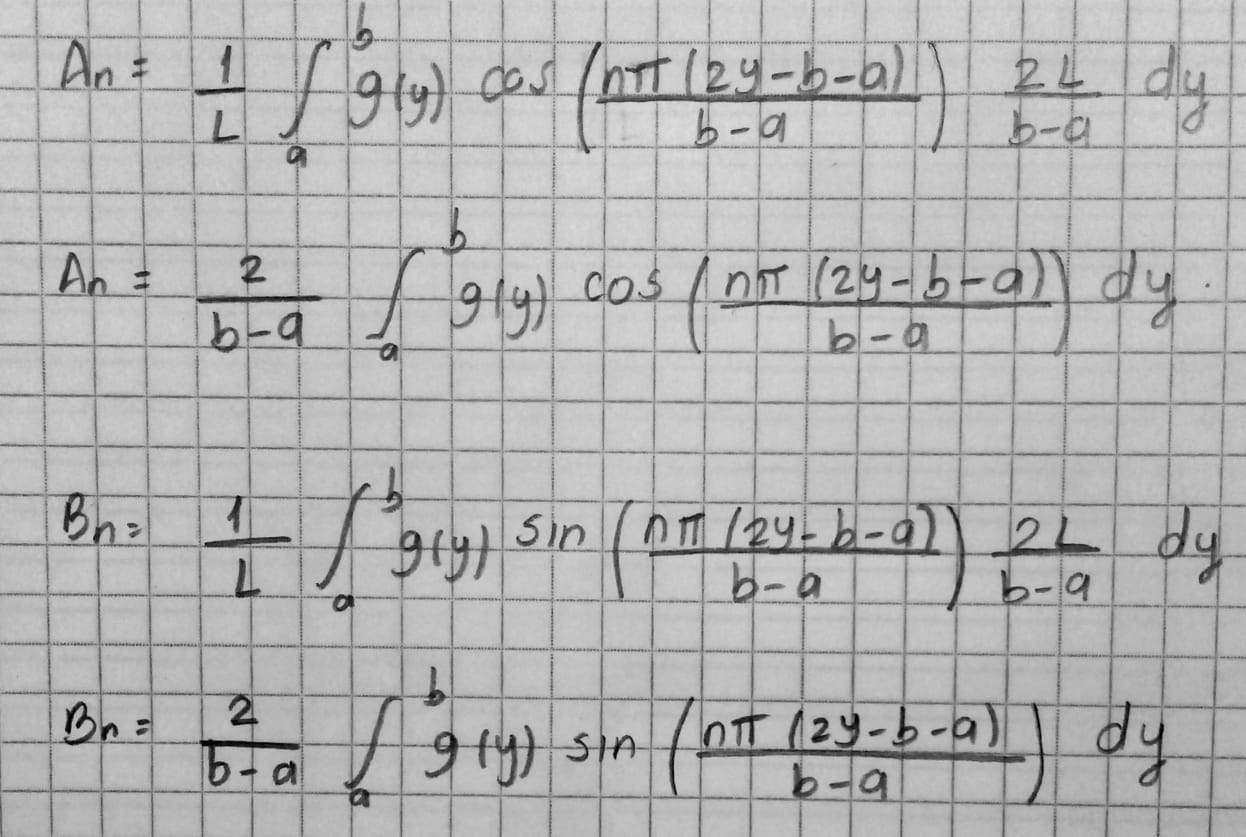 An = 1/L ∫_a^b g(y) cos (nπ (2y-b-a)/b-a) 2L/b-a dy
An = 2/b-a ∫_a^b g(y) cos (nπ (2y-b-a)/b-a) dy.
Bn = 1/L ∫_a^b g(y) sin (nπ (2y-b-a)/b-a) 2L/b-a dy
Bn = 2/b-a ∫_a^b g(y) sin (nπ (2y-b-a)/b-a) dy